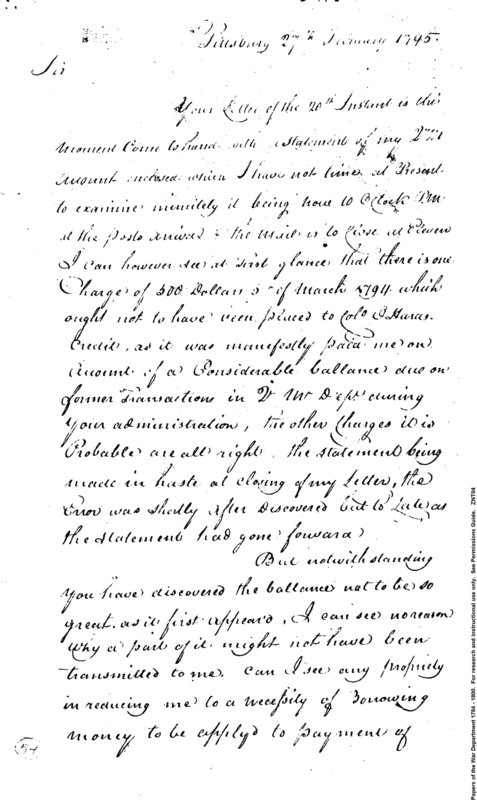 Pittsburg 27th February 1795.
Sir
Your Letter of the 20th Instant is this
moment Come to hand with a Statement of my
account enclosed which I have not time at Present
to examine minutely it being now 10 OClock PM
at the posts arrival & the mail is to Close at Eleven
I can however see at first glance that there is one
Charge of 500 Dollars 3d of March 1794 which
ought not to have been placed to Colo OHaras
Credit, as it was manefestly paid me on
Account of a Considerable ballance due on
former Transactions in Dept during
Your administration, the other Charges it is
Probable are all right, the statement being
made in haste at closing of my Letter, the
Error was shortly after discovered but to Late as
the statement had gone forward
But notwithstanding
You have discovered the ballance not to be so
great as it first appeard, I can see no reason
why a part of it might not have been
transmitted to me. Can I see any propriety
in reducing me to a necessity of Borrowing
money to be applyd to payment of
54
Papers of the War Department 1784 - 1800. For research and instructional use only. See Permissions Guide. ZNT04